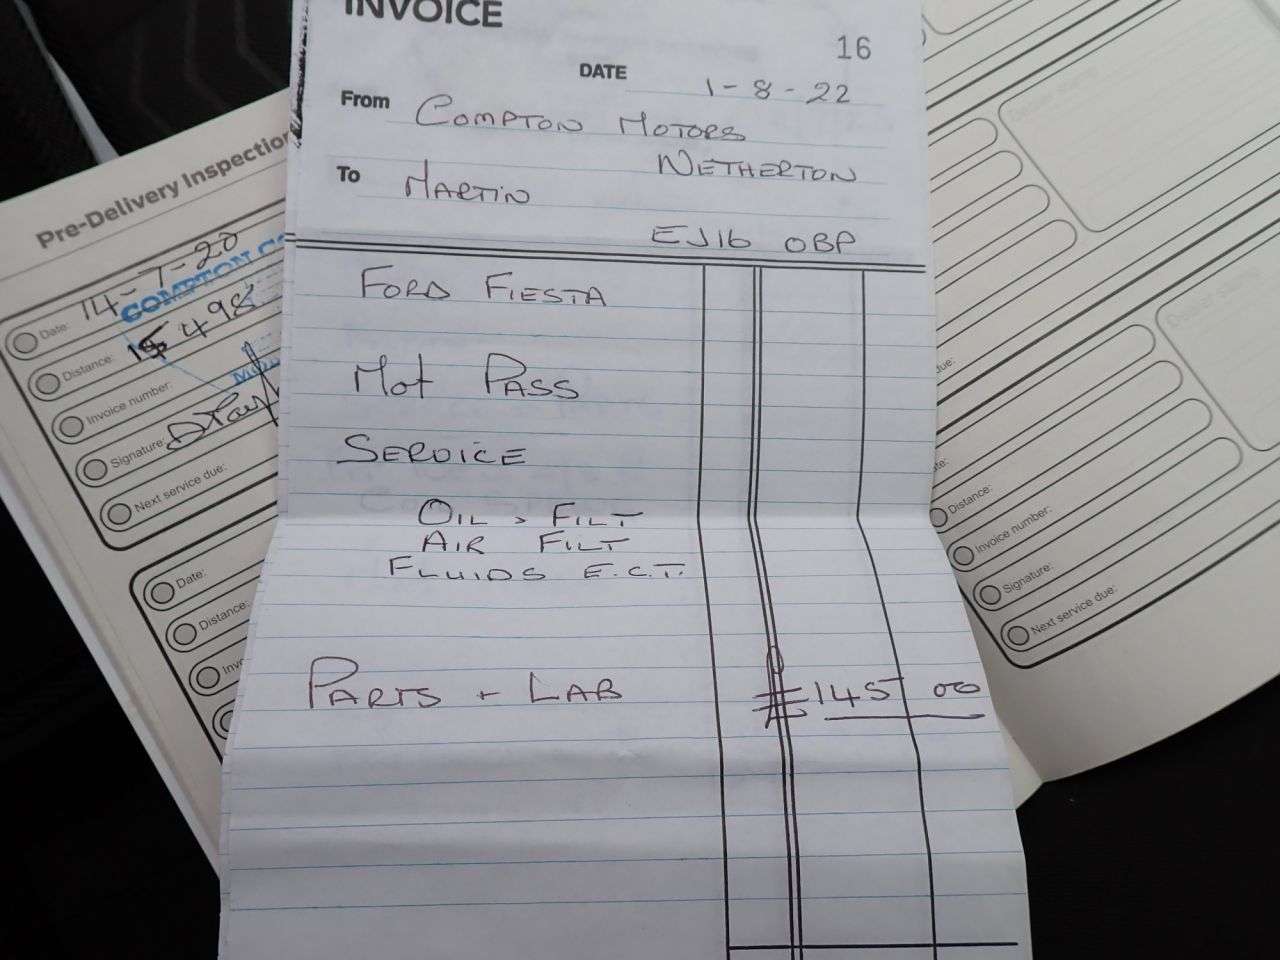 INVOICE
16
DATE 1-8-22
From COMPTON MOTORS
NETHERTON
To MARTIN
EJ16 OBP
FORD FIESTA
Mot PASS
SERVICE
OIL > FILT
AIR FILT
FLUIDS E.C.T.
PARTS + LAB £145 00
Pre-Delivery Inspection
Date: 14-7-20
COMPTON
Distance: 15498
Invoice number:
Signature:
Next service due:
Date:
Distance:
Distance:
Invoice number:
Signature:
Next service due: